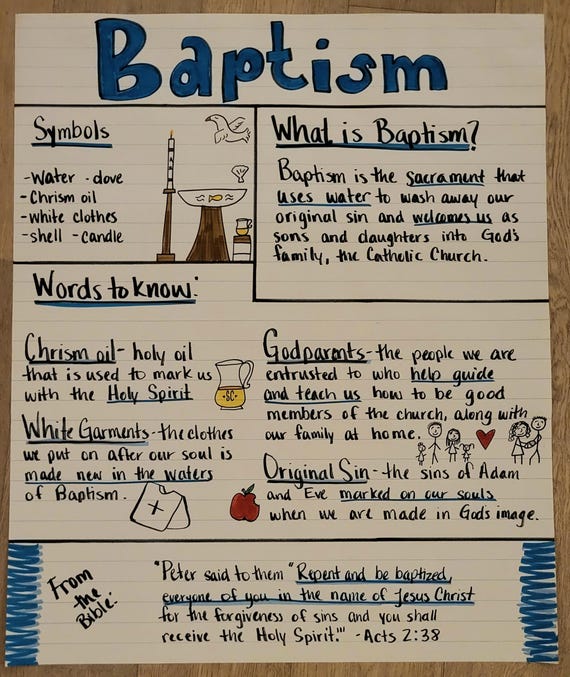 Baptism
Symbols
-Water -dove
-Chrism oil
-white clothes
-shell -candle
What is Baptism?
Baptism is the sacrament that
uses water to wash away our
original sin and welcomes us as
sons and daughters into God's
family, the Catholic Church.
Words to know:
Chrism oil- holy oil
that is used to mark us
with the Holy Spirit
·SC·
White Garments-the clothes
we put on after our soul is
made new in the waters
of Baptism.
Godparents-the people we are
entrusted to who help guide
and teach us how to be good
members of the church, along with
our family at home.
Original Sin-the sins of Adam
and Eve marked on our souls
when we are made in God's image.
From
the
Bible:
"Peter said to them "Repent and be baptized,
everyone of you in the name of Jesus Christ
for the forgiveness of sins and you shall
receive the Holy Spirit.'" -Acts 2:38